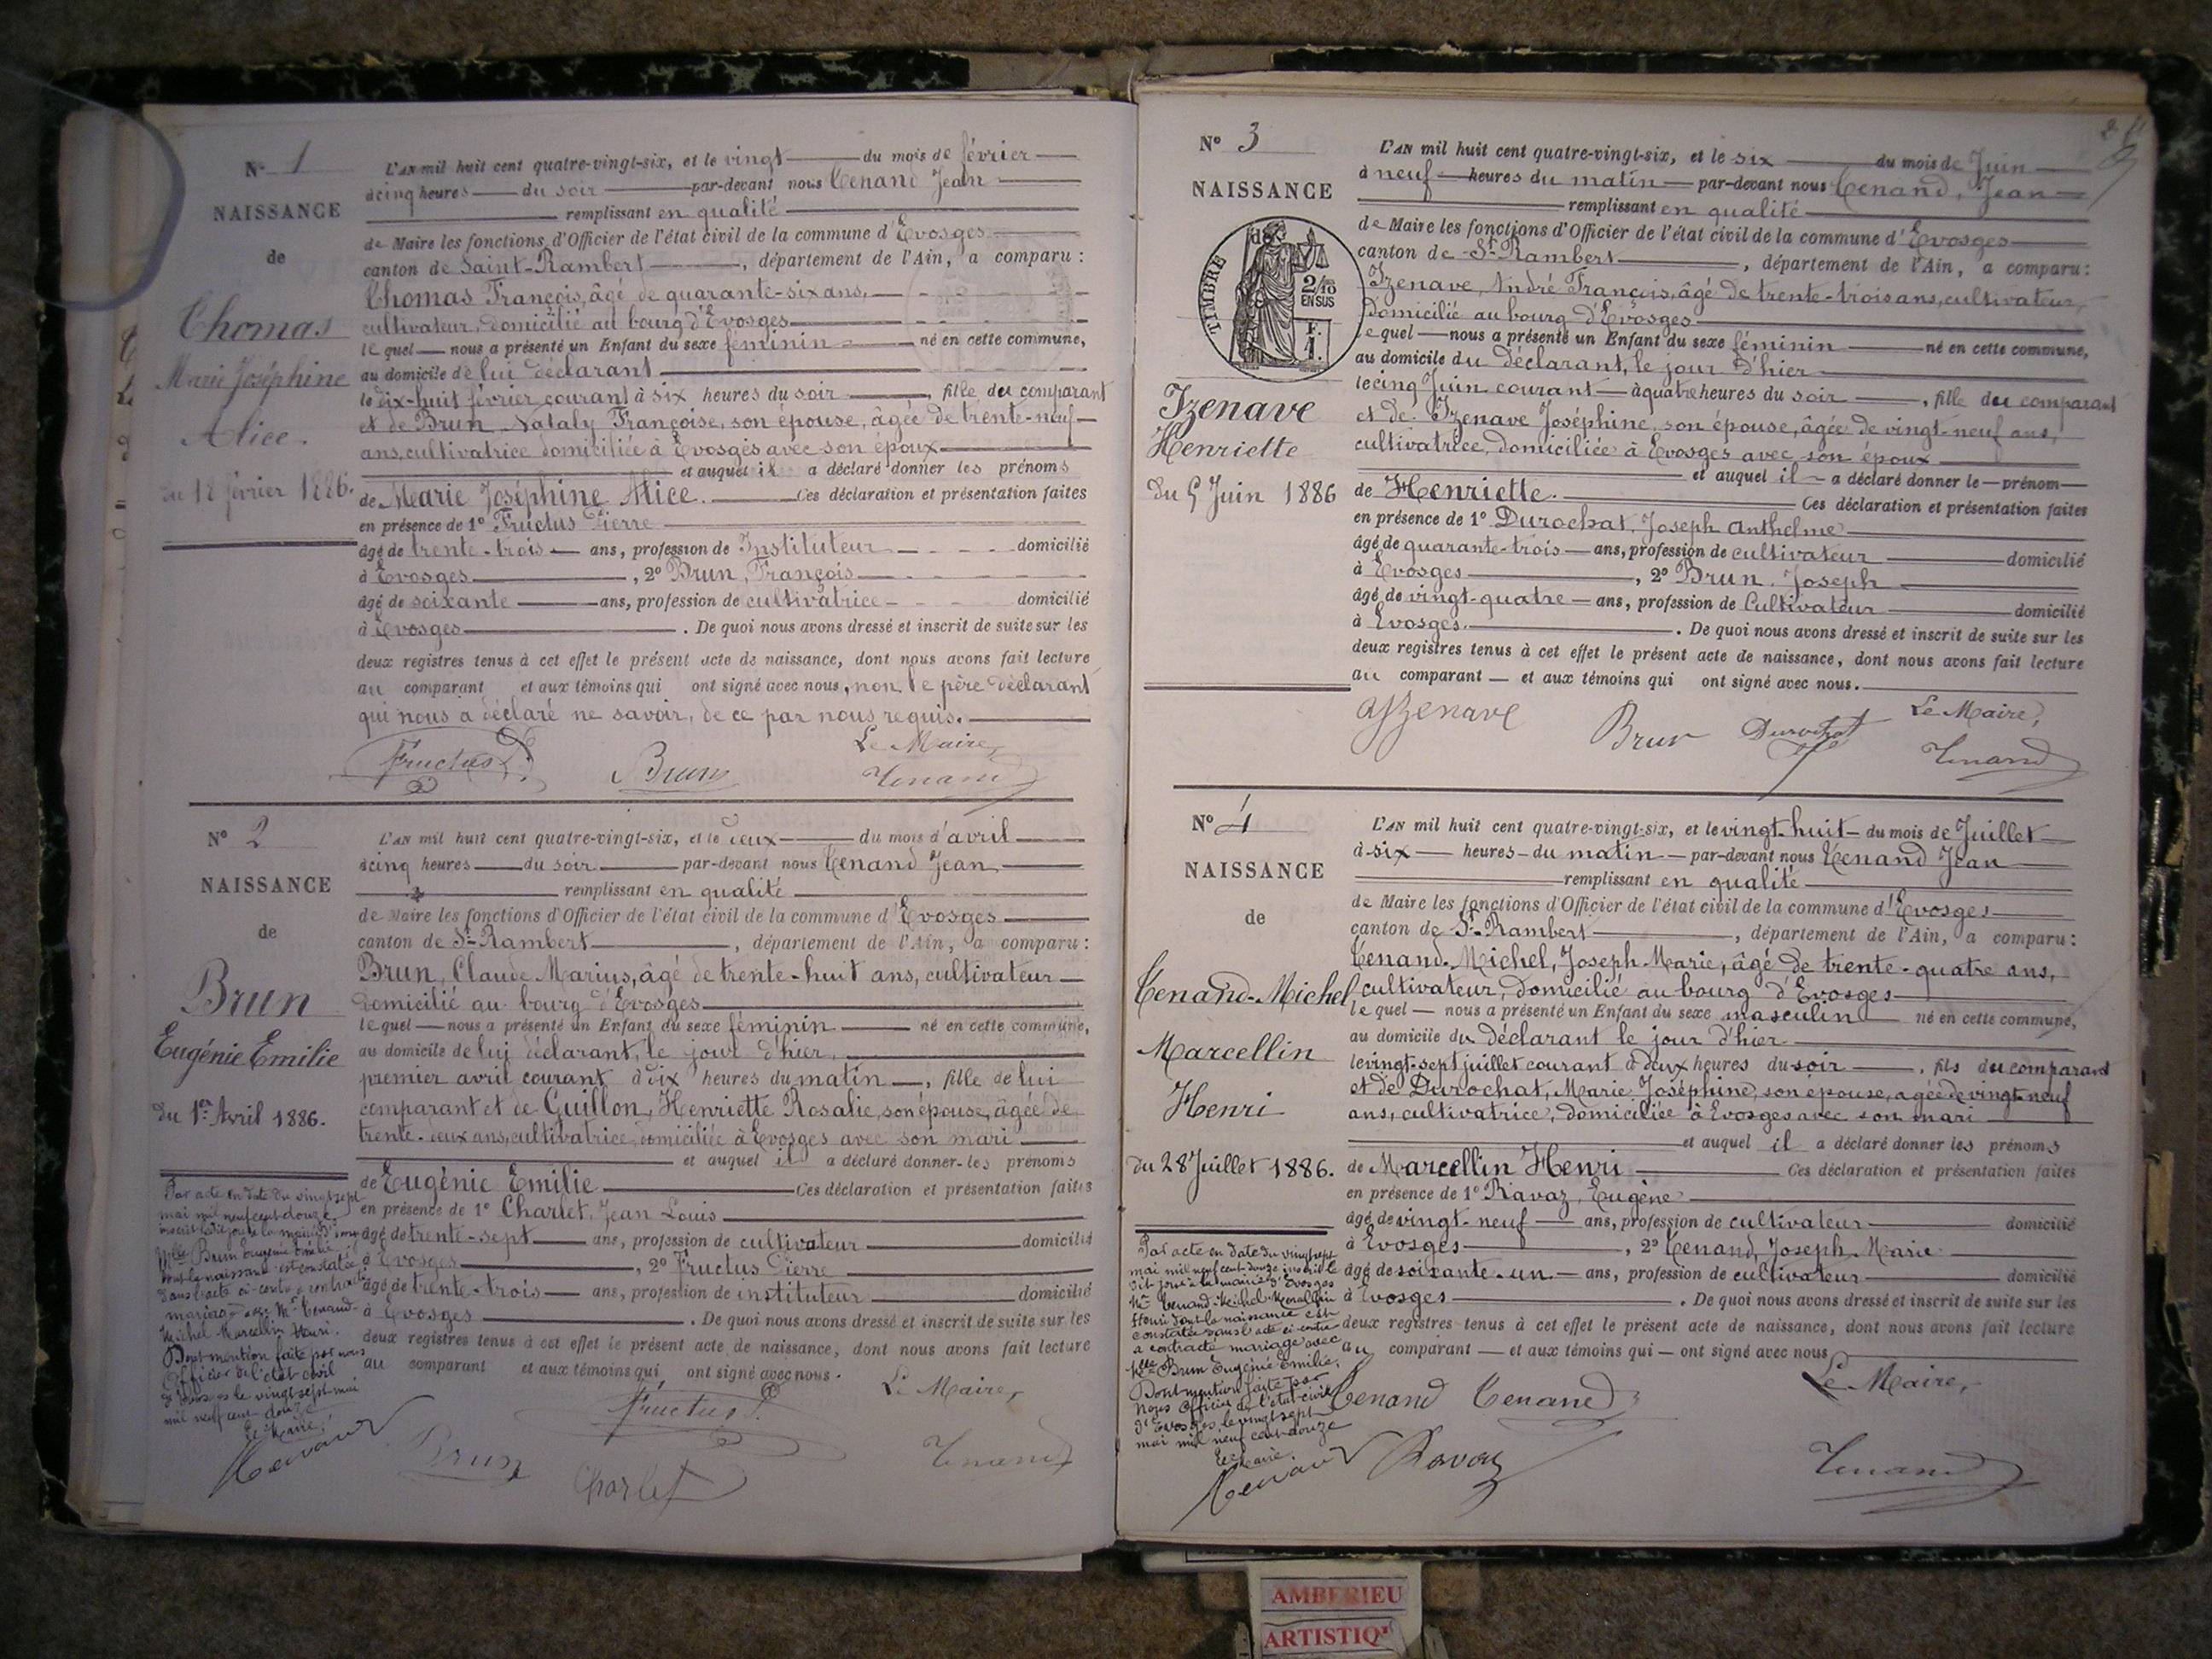 N° 1
NAISSANCE
de
Thomas
Marie Joséphine
Alice.
du 18 février 1886.
L'AN mil huit cent quatre-vingt-six, et le vingt du mois de février
à cinq heures du soir par-devant nous Tenand Jean
remplissant en qualité
de Maire les fonctions d'Officier de l'état civil de la commune d'Evosges
canton de Saint-Rambert, département de l'Ain, a comparu :
Thomas François, âgé de quarante-six ans,
cultivateur, domicilié au bourg d'Evosges
lequel nous a présenté un Enfant du sexe féminin né en cette commune,
au domicile de lui déclarant
le dix-huit février courant à six heures du soir, fille du comparant
et de Brun, Nataly Françoise, son épouse, âgée de trente-neuf
ans, cultivatrice domiciliée à Evosges avec son époux
et auquel il a déclaré donner les prénoms
de Marie Joséphine Alice. Ces déclaration et présentation faites
en présence de 1° Fructus Pierre
âgé de trente-trois ans, profession de Instituteur domicilié
à Evosges, 2° Brun, François
âgé de soixante ans, profession de cultivatrice domicilié
à Evosges. De quoi nous avons dressé et inscrit de suite sur les
deux registres tenus à cet effet le présent acte de naissance, dont nous avons fait lecture
au comparant et aux témoins qui ont signé avec nous, non le père déclarant
qui nous a déclaré ne savoir, de ce par nous requis.
Le Maire,
Fructus P. Brun Tenand
N° 2
NAISSANCE
de
Brun
Eugénie Emilie
du 1er Avril 1886.
L'AN mil huit cent quatre-vingt-six, et le deux du mois d'avril
à cinq heures du soir par-devant nous Tenand Jean
remplissant en qualité
de Maire les fonctions d'Officier de l'état civil de la commune d'Evosges
canton de St-Rambert, département de l'Ain, a comparu :
Brun, Claude Marius, âgé de trente-huit ans, cultivateur
domicilié au bourg d'Evosges
lequel nous a présenté un Enfant du sexe féminin né en cette commune,
au domicile de lui déclarant, le jour d'hier,
premier avril courant à dix heures du matin, fille de lui
comparant et de Guillon, Henriette Rosalie, son épouse, âgée de
trente-deux ans, cultivatrice, domiciliée à Evosges avec son mari
et auquel il a déclaré donner les prénoms
de Eugénie Emilie Ces déclaration et présentation faites
en présence de 1° Charlet, Jean Louis
âgé de trente-sept ans, profession de cultivateur domicilié
à Evosges, 2° Fructus Pierre
âgé de trente-trois ans, profession de instituteur domicilié
à Evosges. De quoi nous avons dressé et inscrit de suite sur les
deux registres tenus à cet effet le présent acte de naissance, dont nous avons fait lecture
au comparant et aux témoins qui ont signé avec nous.
Le Maire,
Par acte en date du vingt sept
mai mil neuf cent douze
inscrit le dit jour à la mairie d'Evosges
Mlle Brun Eugénie Emilie
dont la naissance est constatée
dans l'acte ci-contre a contracté
mariage avec Mr Tenand-
Michel Marcellin Henri.
Dont mention faite par nous
Officier de l'état civil
d'Evosges le vingt sept mai
mil neuf cent douze
Le Maire,
Brun Fructus P. Charlet Tenand
N° 3
NAISSANCE
de
TIMBRE
2/10
EN SUS
F.
1.
Izenave
Henriette
du 5 Juin 1886
L'AN mil huit cent quatre-vingt-six, et le six du mois de Juin
à neuf heures du matin par-devant nous Tenand, Jean
remplissant en qualité
de Maire les fonctions d'Officier de l'état civil de la commune d'Evosges
canton de St-Rambert, département de l'Ain, a comparu :
Izenave, André François, âgé de trente-trois ans, cultivateur,
domicilié au bourg d'Evosges
lequel nous a présenté un Enfant du sexe féminin né en cette commune,
au domicile du déclarant, le jour d'hier
le cinq Juin courant à quatre heures du soir, fille du comparant
et de Izenave Joséphine, son épouse, âgée de vingt-neuf ans,
cultivatrice, domiciliée à Evosges avec son époux
et auquel il a déclaré donner le prénom
de Henriette. Ces déclaration et présentation faites
en présence de 1° Durochat, Joseph Anthelme
âgé de quarante-trois ans, profession de cultivateur domicilié
à Evosges, 2° Brun, Joseph
âgé de vingt-quatre ans, profession de Cultivateur domicilié
à Evosges. De quoi nous avons dressé et inscrit de suite sur les
deux registres tenus à cet effet le présent acte de naissance, dont nous avons fait lecture
au comparant et aux témoins qui ont signé avec nous.
Le Maire,
Izenave Brun Durochat Tenand
N° 4
NAISSANCE
de
Tenand-Michel
Marcellin
Henri
du 28 Juillet 1886.
L'AN mil huit cent quatre-vingt-six, et le vingt-huit du mois de Juillet
à six heures du matin par-devant nous Tenand Jean
remplissant en qualité
de Maire les fonctions d'Officier de l'état civil de la commune d'Evosges
canton de St-Rambert, département de l'Ain, a comparu :
Tenand-Michel, Joseph Marie, âgé de trente-quatre ans,
cultivateur, domicilié au bourg d'Evosges
lequel nous a présenté un Enfant du sexe masculin né en cette commune,
au domicile du déclarant le jour d'hier
le vingt-sept juillet courant à deux heures du soir, fils du comparant
et de Durochat, Marie Joséphine, son épouse, agée de vingt-neuf
ans, cultivatrice, domiciliée à Evosges avec son mari
et auquel il a déclaré donner les prénoms
de Marcellin Henri Ces déclaration et présentation faites
en présence de 1° Ravaz, Eugène
âgé de vingt-neuf ans, profession de cultivateur domicilié
à Evosges, 2° Tenand, Joseph Marie
âgé de soixante-un ans, profession de cultivateur domicilié
à Evosges. De quoi nous avons dressé et inscrit de suite sur les
deux registres tenus à cet effet le présent acte de naissance, dont nous avons fait lecture
au comparant et aux témoins qui ont signé avec nous
Le Maire,
Par acte en date du vingt sept
mai mil neuf cent douze inscrit le
dit jour à la mairie d'Evosges
Mr Tenand-Michel Marcellin
Henri dont la naissance est
constatée dans l'acte ci-contre
a contracté mariage avec
Mlle Brun Eugénie Emilie,
Dont mention faite par
Nous Officier de l'état civil
d'Evosges, le vingt sept
mai mil neuf cent douze
Le Maire
Tenand Tenand
Ravaz Tenand
AMBERIEU
ARTISTIQ